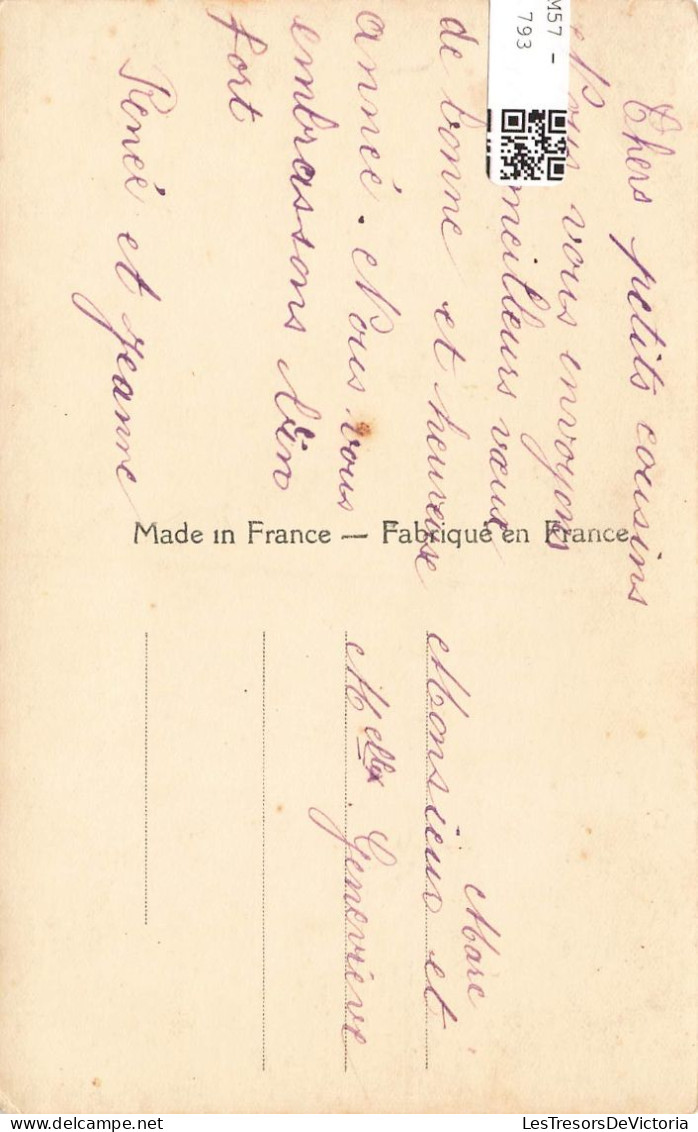 Chers petits cousins
Nous vous envoyons
meilleurs vœux
de bonne et heureuse
année. Nous vous
embrassons bien
fort
Renée et Jeanne
Made in France — Fabriqué en France
Marc
Monsieur et
Melle Geneviève
M57 -
793
delcampe.net
LesTresorsDeVictoria